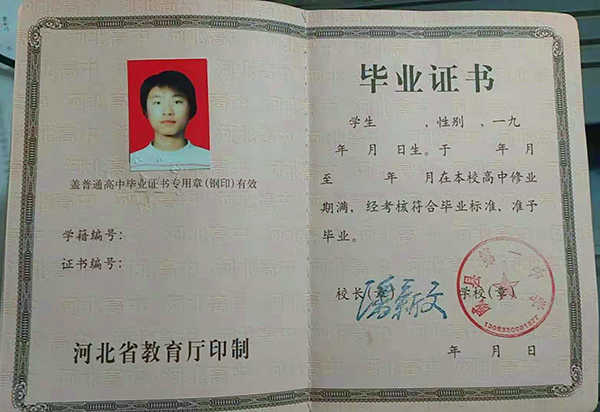 盖普通高中毕业证书专用章(钢印)有效
学籍编号：
证书编号：
河北省教育厅印制
毕业证书
学生　　　，性别　、一九
年　月　日生。于　　年　月
至　　年　　月在本校高中修业
期满，经考核符合毕业标准，准予
毕业。
校长(章)　　学校(章)
潘新文
年　月　日